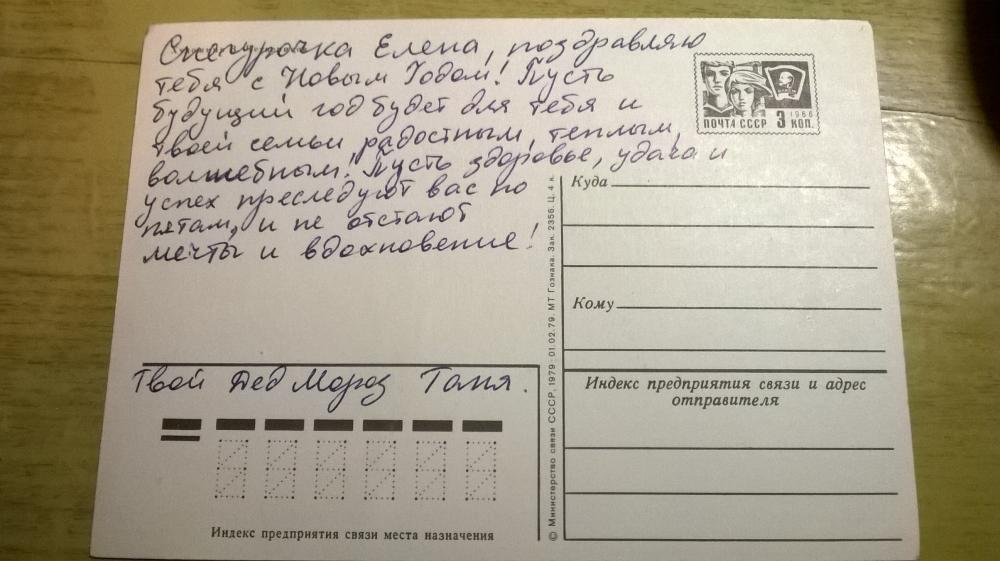 Снегурочка Елена, поздравляю
тебя с Новым Годом! Пусть
будущий год будет для тебя и
твоей семьи радостным, теплым,
волшебным! Пусть здоровье, удача и
успех преследуют вас по
пятам, и не отстают
мечты и вдохновение!
Твой Дед Мороз Таня.
ПОЧТА СССР 3 КОП.
1966
Куда
Кому
Индекс предприятия связи и адрес
отправителя
Индекс предприятия связи места назначения
© Министерство связи СССР, 1979 · 01.02.79. МТ Гознака. Зак. 2356. Ц. 4 к.